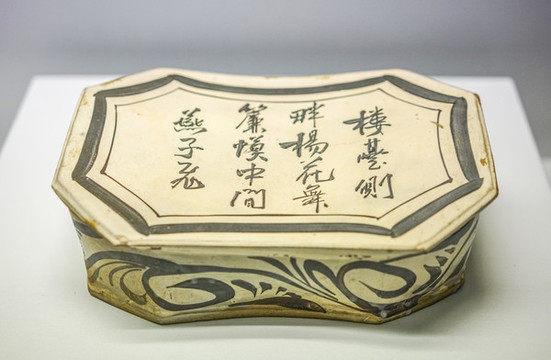 楼䑓側
畔楊花舞
簾幙中間
燕子飛